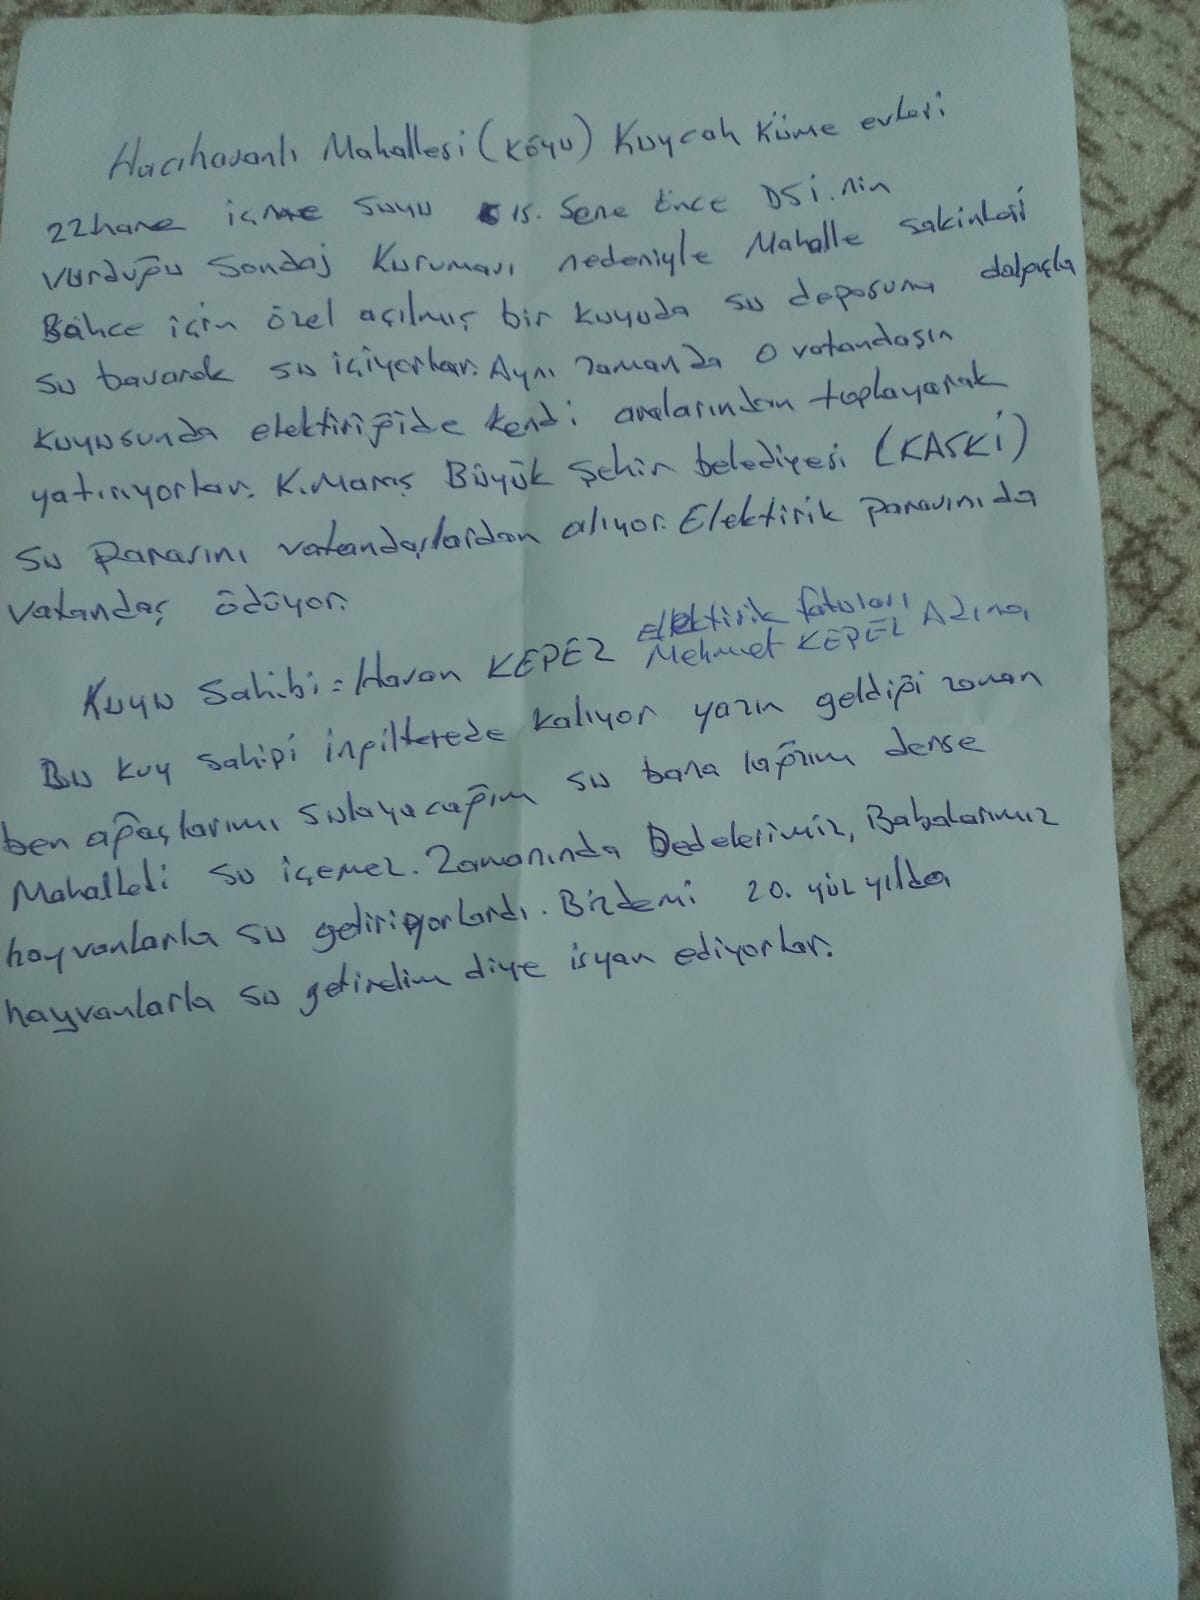 Hacıhasanlı Mahallesi (KÖYÜ) Kuycak Küme evleri
22 hane içme suyu 15. Sene Önce DSİ.nin
vurduğu Sondaj Kuruması nedeniyle Mahalle sakinleri
Bahce için özel açılmış bir kuyuda su deposuna dalgıçla
su basarak su içiyorlar. Aynı zamanda o vatandaşın
kuyusunda elektiriğide kendi aralarından toplayarak
yatırıyorlar. K.Maraş Büyük Şehir belediyesi (KASKİ)
su parasını vatandaşlardan alıyor. Elektirik parasınıda
vatandaş ödüyor.
Kuyu Sahibi = Hasan KEPEZ Elektirik fatuları
Mehmet KEPEZ Adına
Bu kuy sahipi ingilterede kalıyor yazın geldiği zaman
ben ağaçlarımı sulayacağım su bana lağzım derse
Mahalleli su içemez. Zamanında Dedelerimiz, Babalarımız
hayvanlarla su getiriyorlardı. Bizdemi 20. yüz yılda
hayvanlarla su getirelim diye isyan ediyorlar.